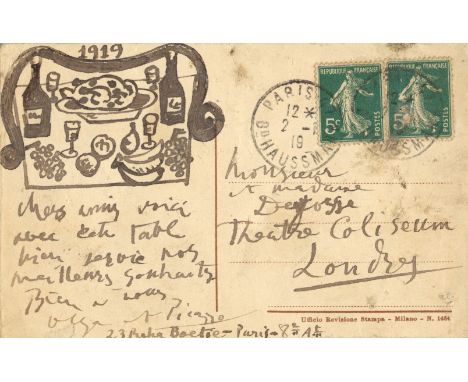 1919
Chers amis voici
avec cette table
bien servie nos
meilleurs souhaits
Bien à vous
Olga et Picasso
23 Rue La Boetie - Paris - 8
Monsieur
et madame
Theatre Coliseum
Londres
PARIS
12
2
19
Bd HAUSSM
REPUBLIQUE FRANÇAISE
5c
POSTES
REPUBLIQUE FRANÇAISE
POSTES
Ufficio Revisione Stampa - Milano - N. 1454.